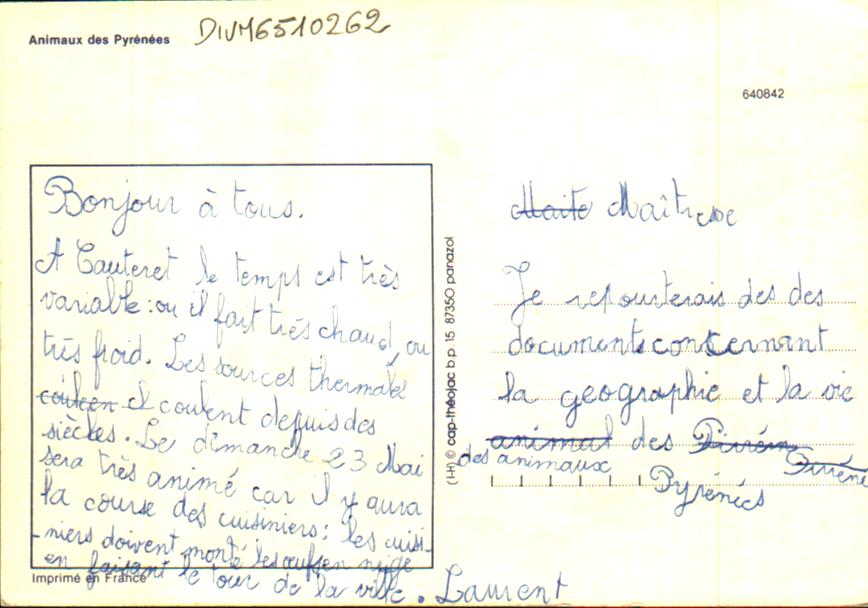 Animaux des Pyrénées
DIVM6510262
640842
Bonjour à tous.
A Cauteret le temps est très
variable : ou il fait très chaud, ou
très froid. Les sources thermale
coulent depuis des
siècles. Le dimanche 23 Mai
sera très animé car il y aura
la course des cuisiniers : les cuisi-
-niers doivent monté les œufs en neige
en faisant le tour de la ville. Laurent
Imprimé en France
(I-H) © cap-théojac b.p. 15 87350 panazol
Maite Maîtresse
Je repourterais des des
documents concernant
la geographie et la vie
animal des Pirréne
des animaux Pirréne
Pyrénées